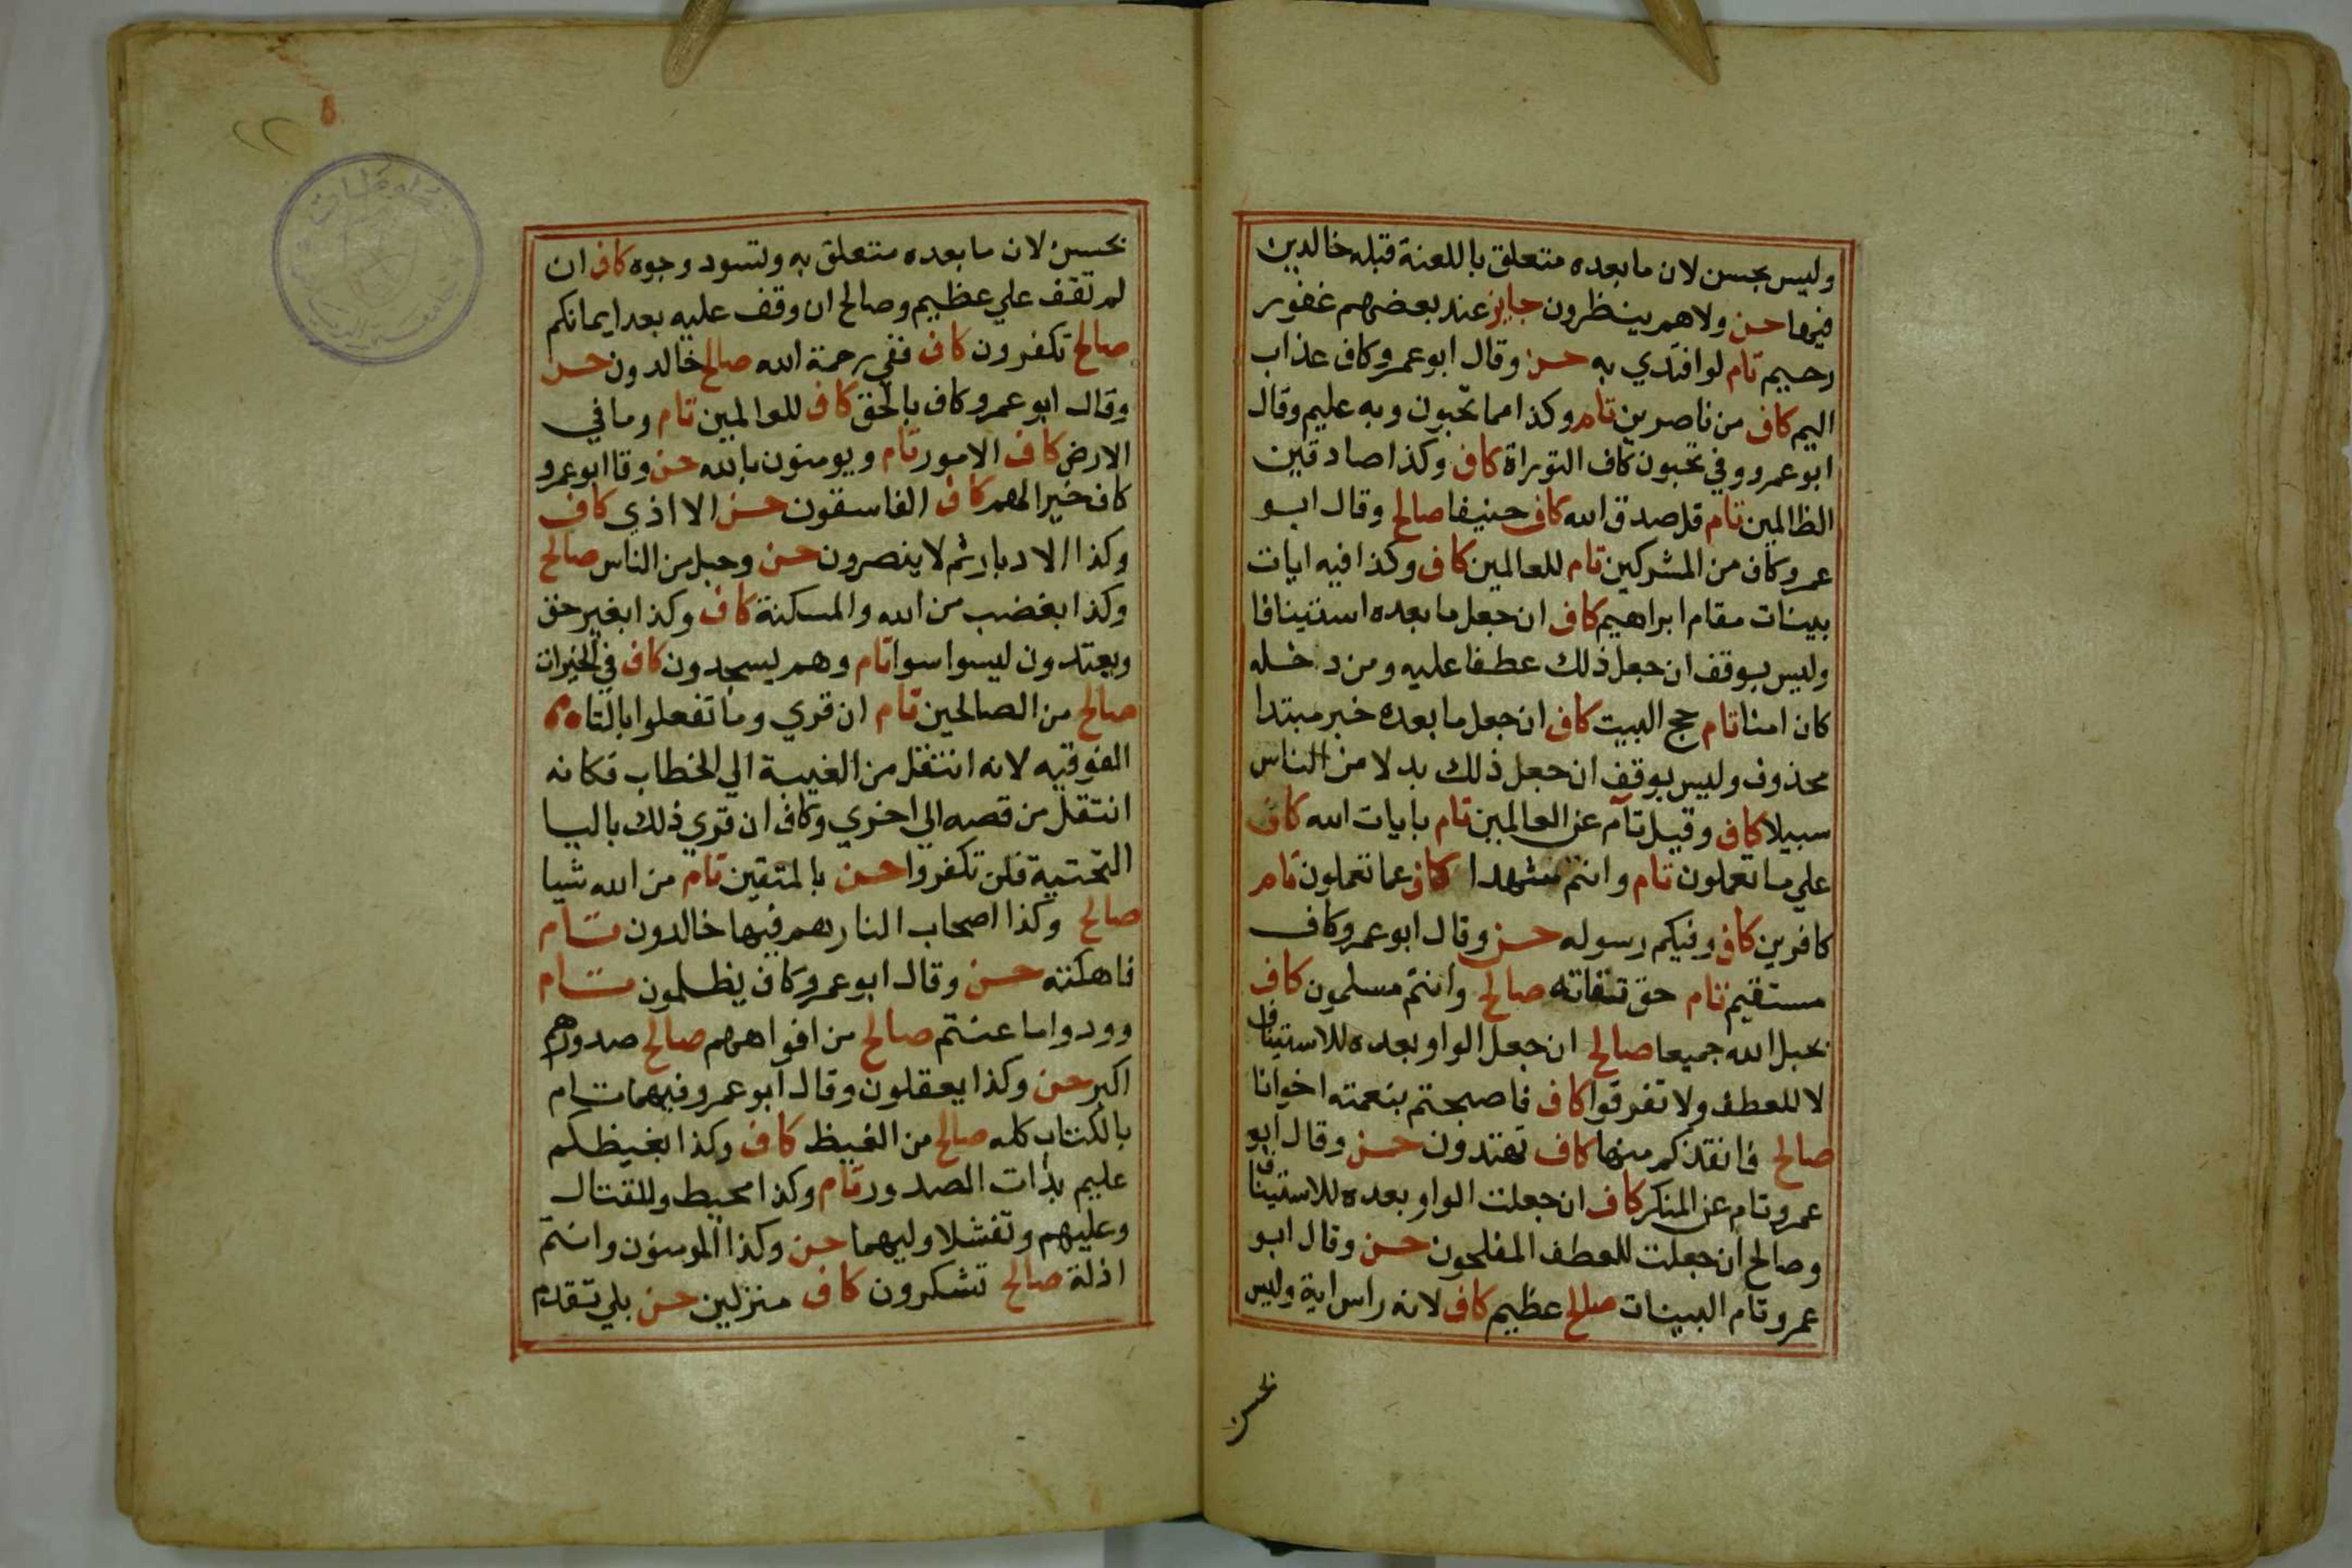 وليس بحسن لان ما بعده متعلق باللعنة قبله خالدين
فيها حسن ولا هم ينظرون جايز عند بعضهم غفور
رحيم تام لو افتدي به حسن وقال ابو عمرو كاف عذاب
اليم كاف من ناصرين تام وكذا مما تحبون وبه عليم وقال
ابو عمرو وفي تحبون كاف التوراة كاف وكذا صادقين
الظالمين تام قل صدق الله كاف حنيفا صالح وقال ابو
عمرو كاف من المشركين تام للعالمين كاف وكذا فيه ايات
بينات مقام ابراهيم كاف ان جعل ما بعده استينافا
وليس بوقف ان جعل ذلك عطفا عليه ومن دخله
كان امنا تام حج البيت كاف ان جعل ما بعده خبر مبتدا
محذوف وليس بوقف ان جعل ذلك بدلا من الناس
سبيلا كاف وقيل تام عن العالمين تام بايات الله كاف
علي ما تعملون تام وانتم شهدا كاف عما تعملون تام
كافرين كاف وفيكم رسوله حسن وقال ابو عمرو كاف
مستقيم تام حق تقاته صالح وانتم مسلمون كاف
بحبل الله جميعا صالح ان جعل الواو بعده للاستيناف
لا للعطف ولا تفرقوا كاف فاصبحتم بنعمته اخوانا
صالح فانقذكم منها كاف تهتدون حسن وقال ابو
عمرو تام عن المنكر كاف ان جعلت الواو بعده للاستيناف
وصالح ان جعلت للعطف المفلحون حسن وقال ابو
عمرو تام البينات صالح عظيم كاف لانه راس اية وليس
بحسن
٢٢
بحسن لان ما بعده متعلق به وتسود وجوه كاف ان
لم تقف علي عظيم وصالح ان وقف عليه بعد ايمانكم
صالح تكفرون كاف ففي رحمة الله صالح خالدون حسن
وقال ابو عمرو كاف بالحق كاف للعالمين تام وما في
الارض كاف الامور تام ويومنون بالله حسن وقا ابو عمرو
كاف خيرا لهم كاف الفاسقون حسن الا اذي كاف
وكذا الادبار ثم لا ينصرون حسن وحبل من الناس صالح
وكذا بغضب من الله والمسكنة كاف وكذا بغير حق
ويعتدون ليسوا سوا تام وهم يسجدون كاف في الخيرات
صالح من الصالحين تام ان قري وما تفعلوا بالتاه
الفوقيه لانه انتقل من الغيبة الي الخطاب فكانه
انتقل من قصه الي اخري وكاف ان قري ذلك باليا
التحتية فلن تكفروا حسن بالمتقين تام من الله شيا
صالح وكذا اصحاب النار هم فيها خالدون تام
فاهلكته حسن وقال ابو عمرو كاف يظلمون تام
وودوا ما عنتم صالح من افواههم صالح صدورهم
اكبر حسن وكذا يعقلون وقال ابو عمرو فيهما تام
بالكتاب كله صالح من الغيظ كاف وكذا بغيظكم
عليم بذات الصدور تام وكذا محيط وللقتال
وعليهم وتفشلا وليهما حسن وكذا المومنون وانتم
اذلة صالح تشكرون كاف منزلين حسن بلي تقدم